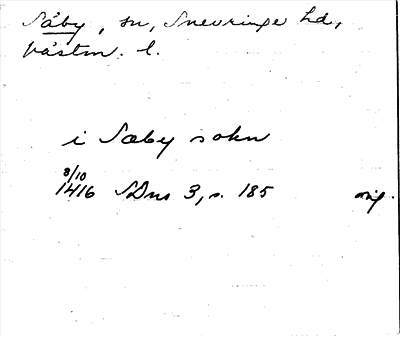 Säby, sn, Snevringe hd,
Västm. l.
i Sæby sokn
8/10
1416 SDns 3, s. 185 orig.